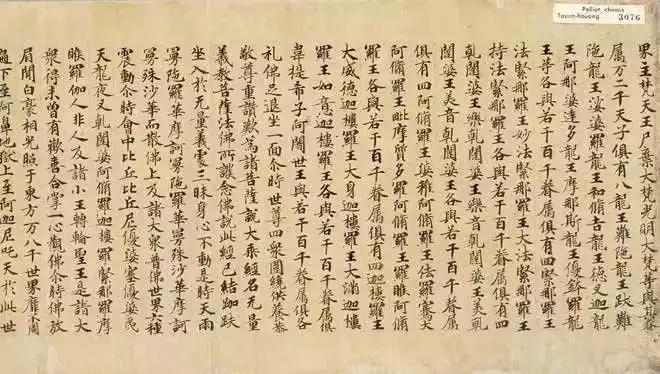 Pelliot chinois
Touen-houang 3076
界主梵天王尸棄大梵光明大梵等與其眷
属万二千天子俱有八龍王難陁龍王跋難
陁龍王娑婆羅龍王和脩吉龍王德叉迦龍
王阿那婆達多龍王摩那斯龍王優鉢羅龍
王等各與若干百千眷属俱有四緊那羅王
法緊那羅王妙法緊那羅王大法緊那羅王
持法緊那羅王各與若干百千眷属俱有四
乹闥婆王樂乹闥婆王樂音乹闥婆王美乹
闥婆王美音乹闥婆王各與若干百千眷属
俱有四阿脩羅王婆稚阿脩羅王佉羅騫大
阿脩羅王毗摩質多羅阿脩羅王羅睺阿脩
羅王各與若干百千眷属俱有四迦樓羅王
大威德迦樓羅王大身迦樓羅王大滿迦樓
羅王如意迦樓羅王各與若干百千眷属俱
韋提希子阿闍世王與若干百千眷属俱各
礼佛足退坐一面尒時世尊四衆圍繞供養恭
敬尊重讃歎為諸菩薩說大乘經名无量
義教菩薩法佛所護念佛說此經已結跏趺
坐入於无量義處三昧身心不動是時天雨
曼陁羅華摩訶曼陁羅華曼殊沙華摩訶
曼殊沙華而散佛上及諸大衆普佛世界六種
震動尒時會中比丘比丘尼優婆塞優婆夷
天龍夜叉乹闥婆阿脩羅迦樓羅緊那羅摩
睺羅伽人非人及諸小王轉輪聖王是諸大
衆得未曾有歡喜合掌一心觀佛尒時佛放
眉間白豪相光照于東方万八千世界靡不周
遍下至阿鼻地獄上至阿迦尼吒天於此世